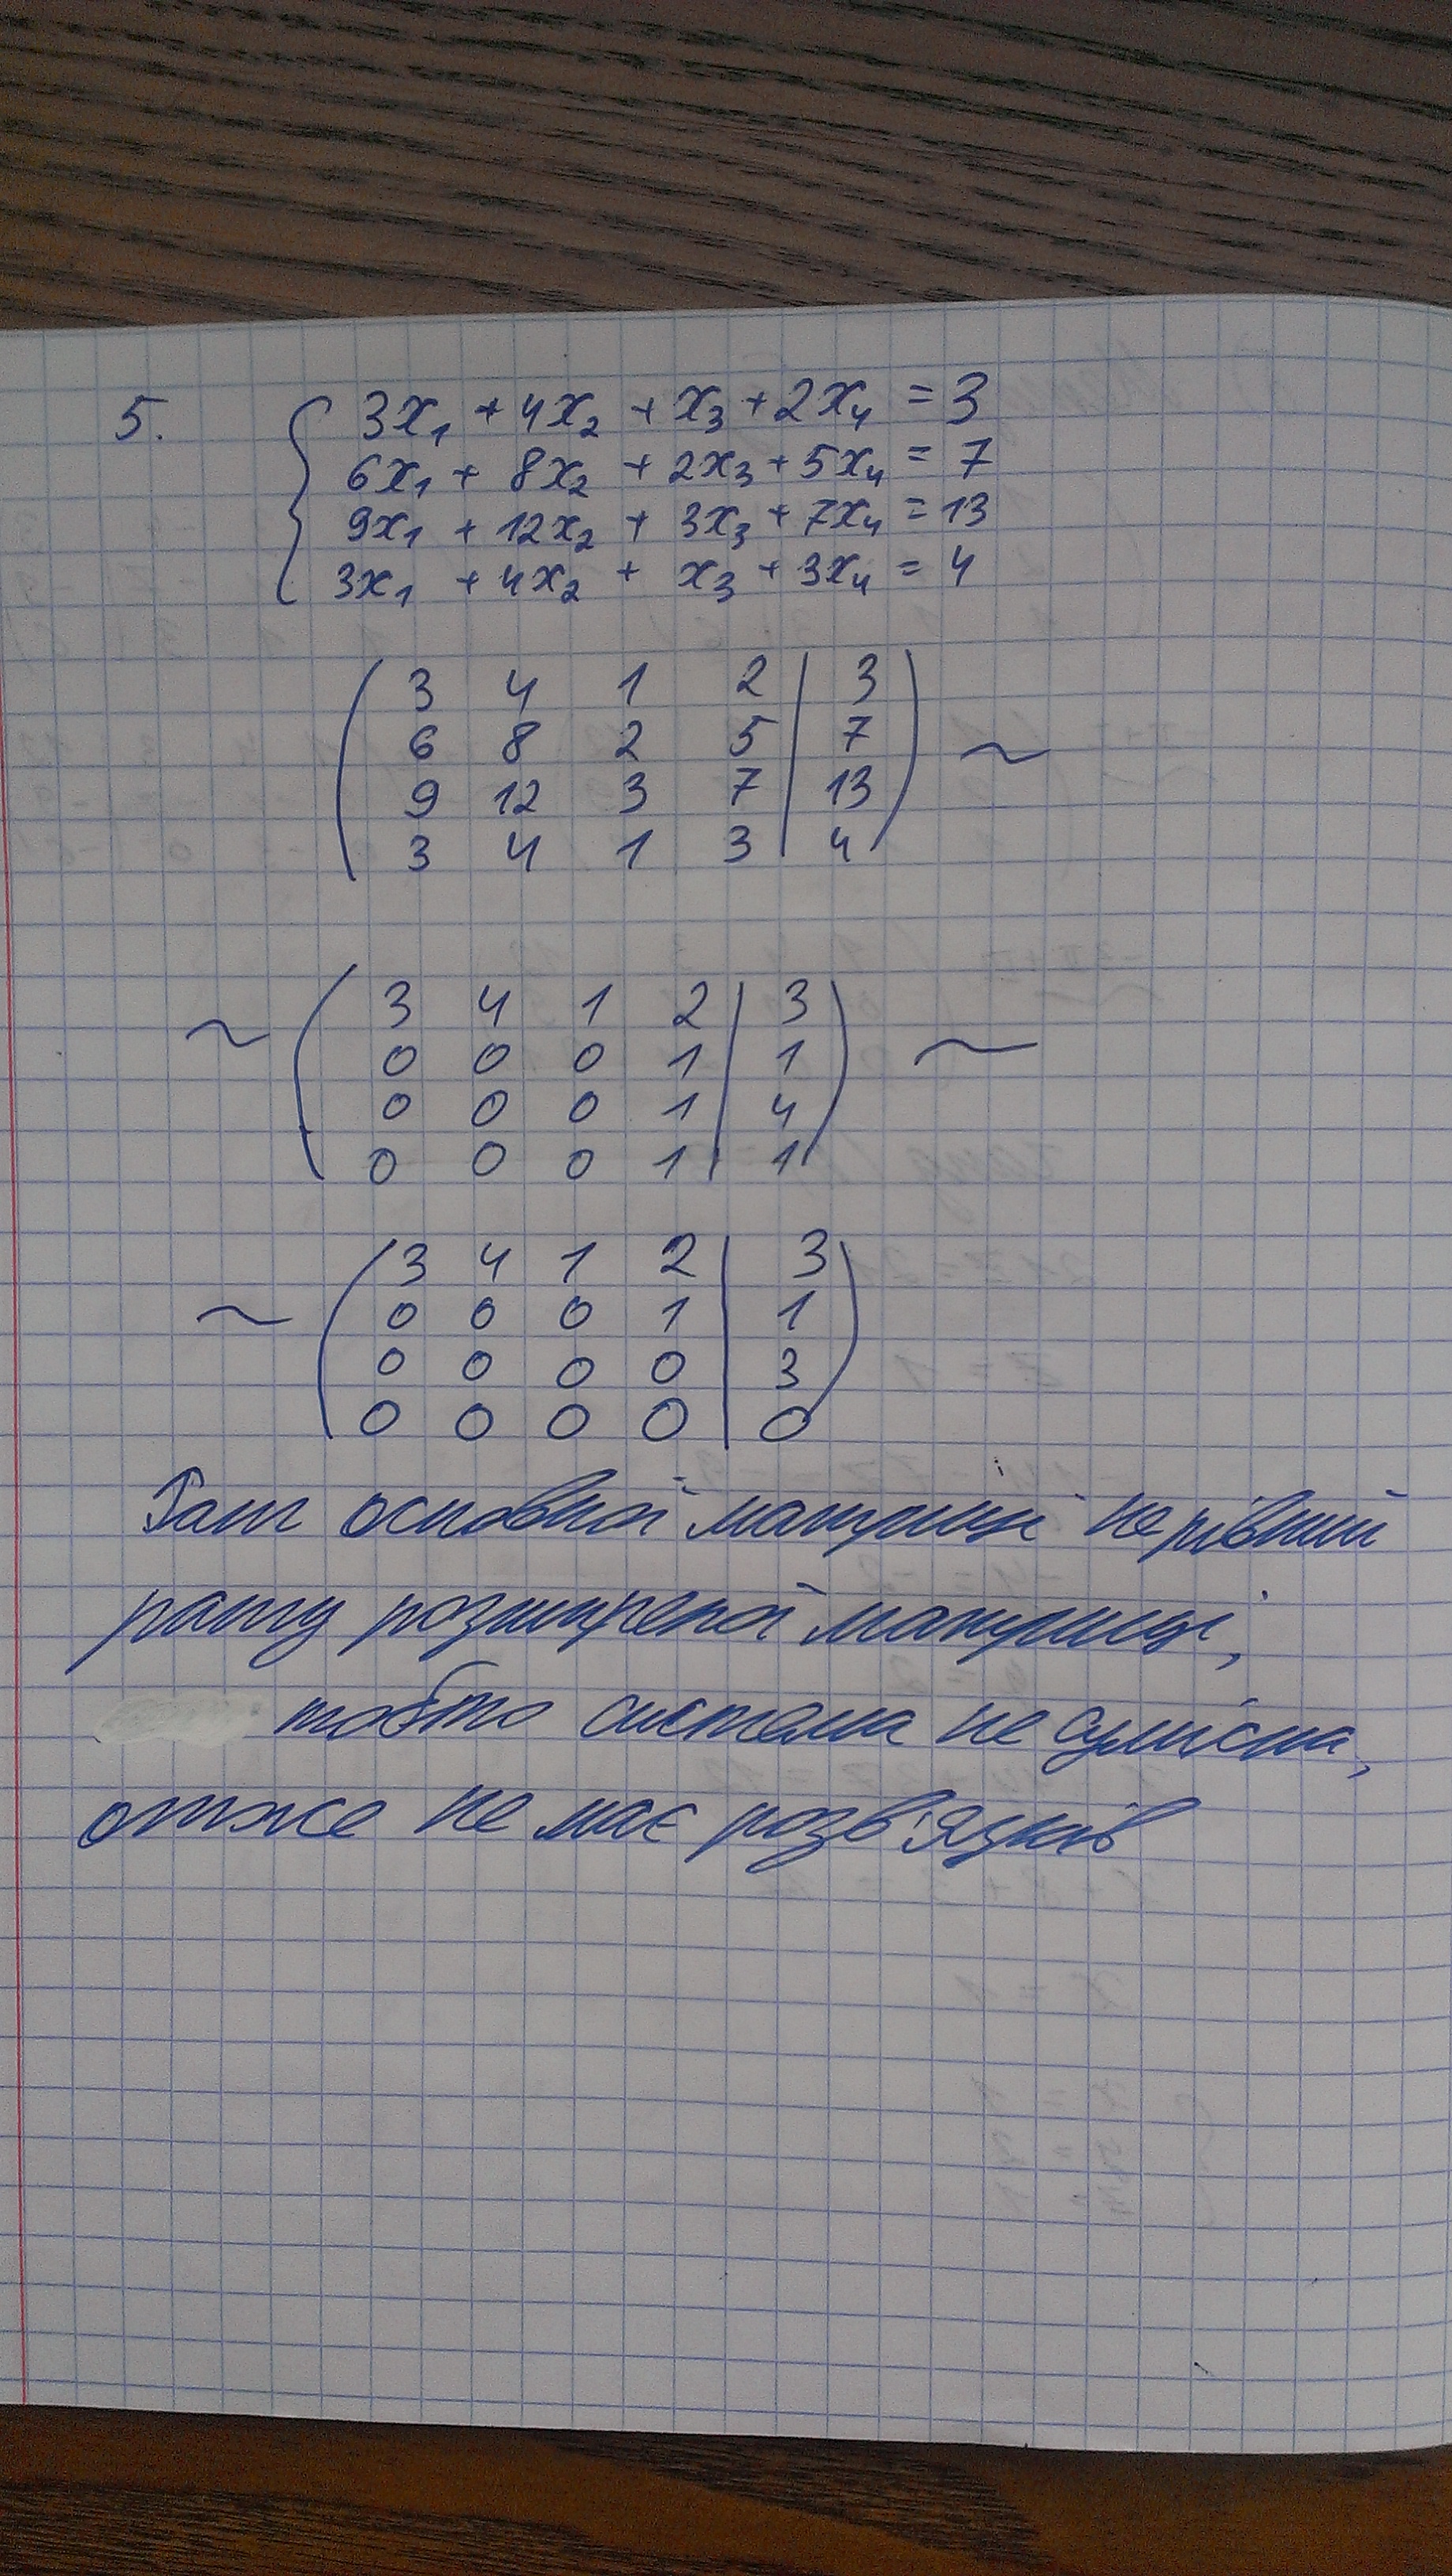 5. { 3x₁ + 4x₂ + x₃ + 2x₄ = 3
6x₁ + 8x₂ + 2x₃ + 5x₄ = 7
9x₁ + 12x₂ + 3x₃ + 7x₄ = 13
3x₁ + 4x₂ + x₃ + 3x₄ = 4
( 3 4 1 2 | 3 ) ~
6 8 2 5 | 7
9 12 3 7 | 13
3 4 1 3 | 4
~ ( 3 4 1 2 | 3 ) ~
0 0 0 1 | 1
0 0 0 1 | 4
0 0 0 1 | 1
~ ( 3 4 1 2 | 3 )
0 0 0 1 | 1
0 0 0 0 | 3
0 0 0 0 | 0
Ранг основної матриці не рівний
рангу розширеної матриці,
тобто система не сумісна,
отже не має розв'язків